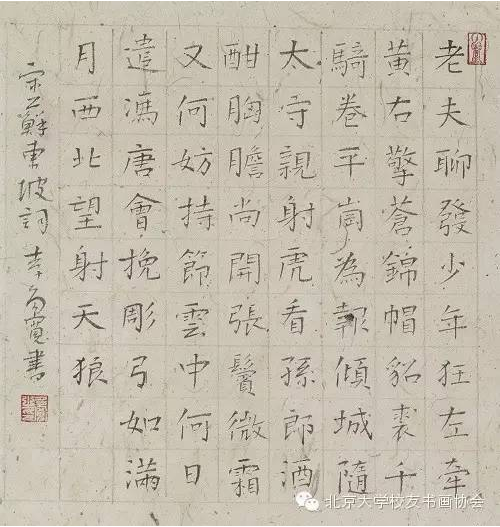 老夫聊發少年狂左牽
黃右擎蒼錦帽貂裘千
騎卷平崗為報傾城隨
太守親射虎看孫郎酒
酣胸膽尚開張鬢微霜
又何妨持節雲中何日
遣馮唐會挽彫弓如滿
月西北望射天狼
宋人蘇東坡詞李寬書
北京大学校友书画协会